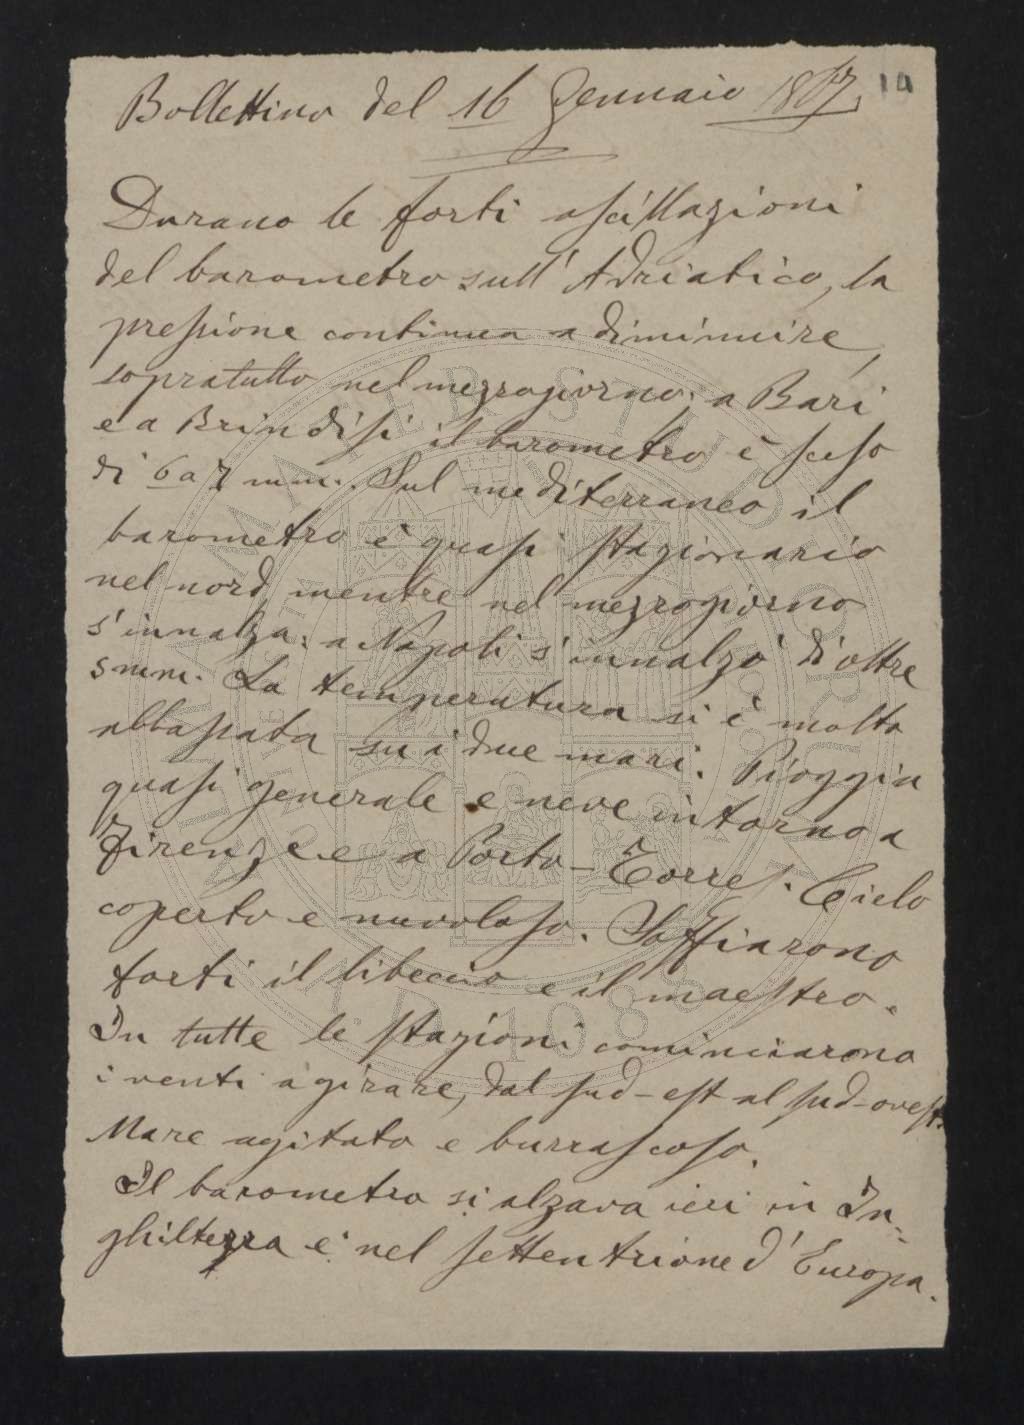 Bollettino del 16 Gennaio 1867.
Durano le forti oscillazioni
del barometro sull'Adriatico, la
pressione continua a diminuire,
sopratutto nel mezzogiorno; a Bari
e a Brindisi il barometro è sceso
di 6 a 7 mm. Sul mediterraneo il
barometro è quasi stazionario
nel nord, mentre nel mezzogiorno
s'innalza: a Napoli s'innalzò di oltre
5 mm. La temperatura si è molto
abbassata su i due mari. Pioggia
quasi generale e neve intorno a
Firenze e a Porto-Torres. Cielo
coperto e nuvoloso. Soffiarono
forti il libeccio e il maestro.
In tutte le stazioni cominciarono
i venti a girare, dal sud-est al sud-ovest.
Mare agitato e burrascoso.
Il barometro si alzava ieri in In-
ghilterra e nel settentrione d'Europa.
ALMA MATER STUDIORUM
A.D. 1088